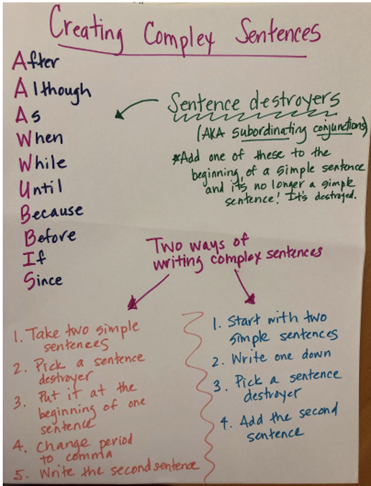 Creating Complex Sentences
After
Although
As
When
While
Until
Because
Before
If
Since
Sentence destroyers
(AKA subordinating conjunctions)
*Add one of these to the
beginning of a simple sentence
and it's no longer a simple
sentence! It's destroyed.
Two ways of
writing complex sentences
1. Take two simple
sentences
2. Pick a sentence
destroyer
3. Put it at the
beginning of one
sentence
4. Change period
to comma
5. Write the second sentence
1. Start with two
simple sentences
2. Write one down
3. Pick a sentence
destroyer
4. Add the second
sentence